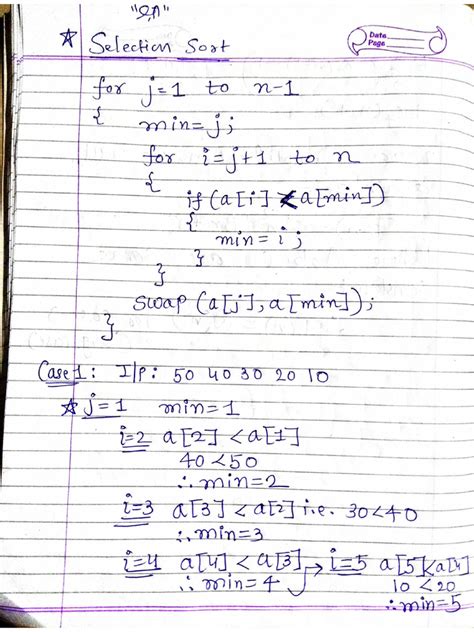 Selection Sort
Date
Page
for j=1 to n-1
{
min=j;
for i=j+1 to n
{
if (a[i] < a[min])
{
min = i;
}
}
swap (a[j], a[min]);
}
Case 1: I/p: 50 40 30 20 10
* j=1 min=1
i=2 a[2] < a[1]
40 < 50
∴ min=2
i=3 a[3] < a[2] i.e. 30<40
∴ min=3
i=4 a[4] < a[3] → i=5 a[5]<a[4
∴ min=4 10 < 20
∴ min=5